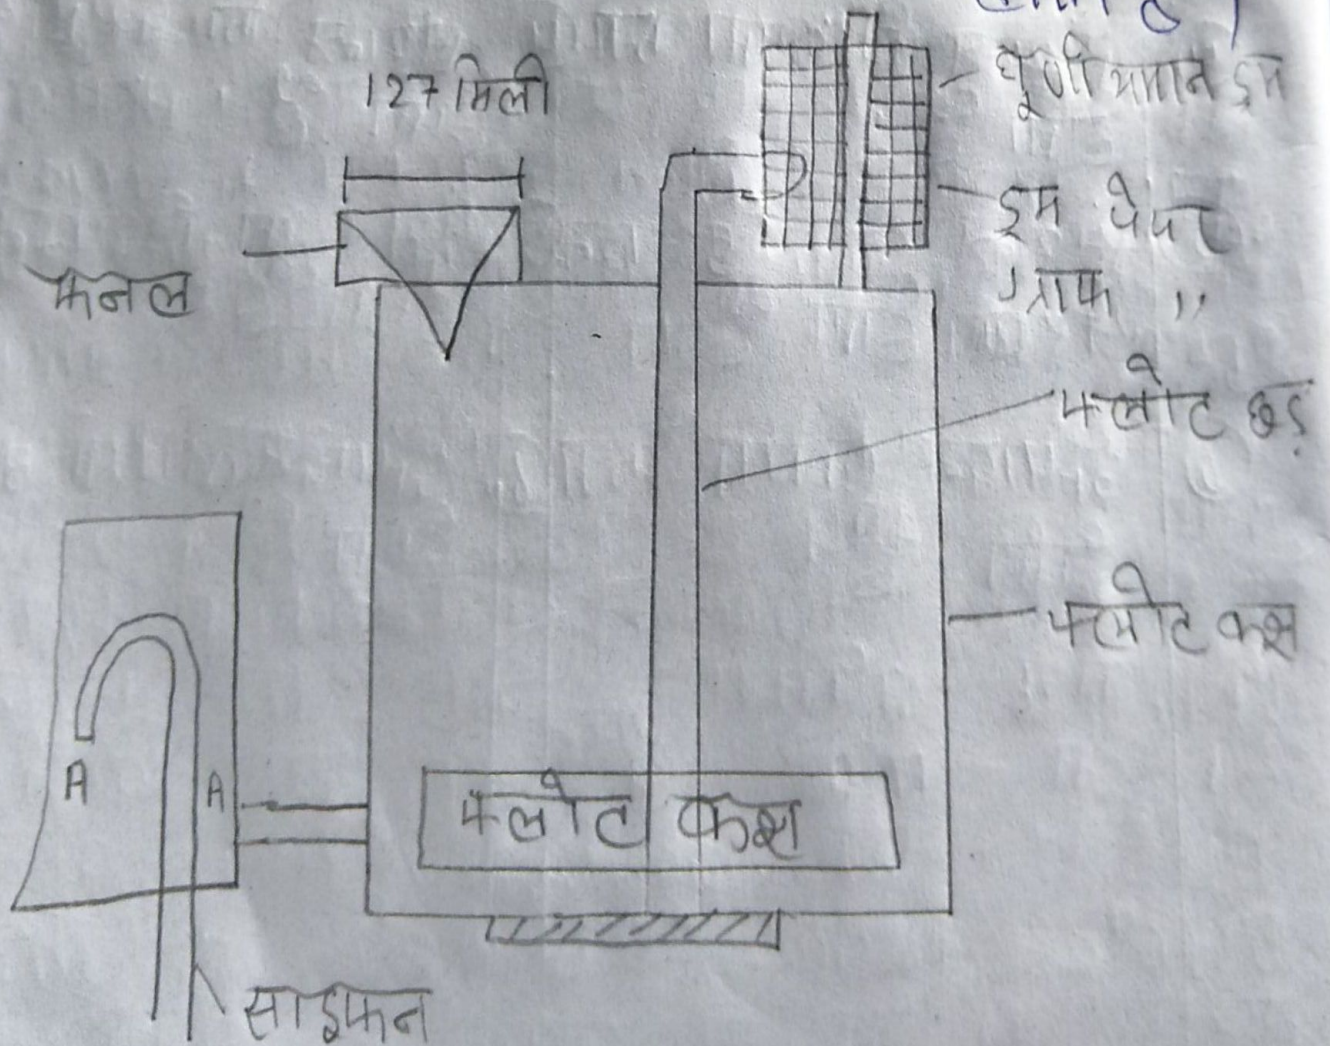 127 मिली
घूर्णायमान ड्रम
ड्रम पेपर
ग्राफ "
फनल
फ्लोट छड़
फ्लोट कक्ष
A A
फ्लोट कक्ष
साइफन